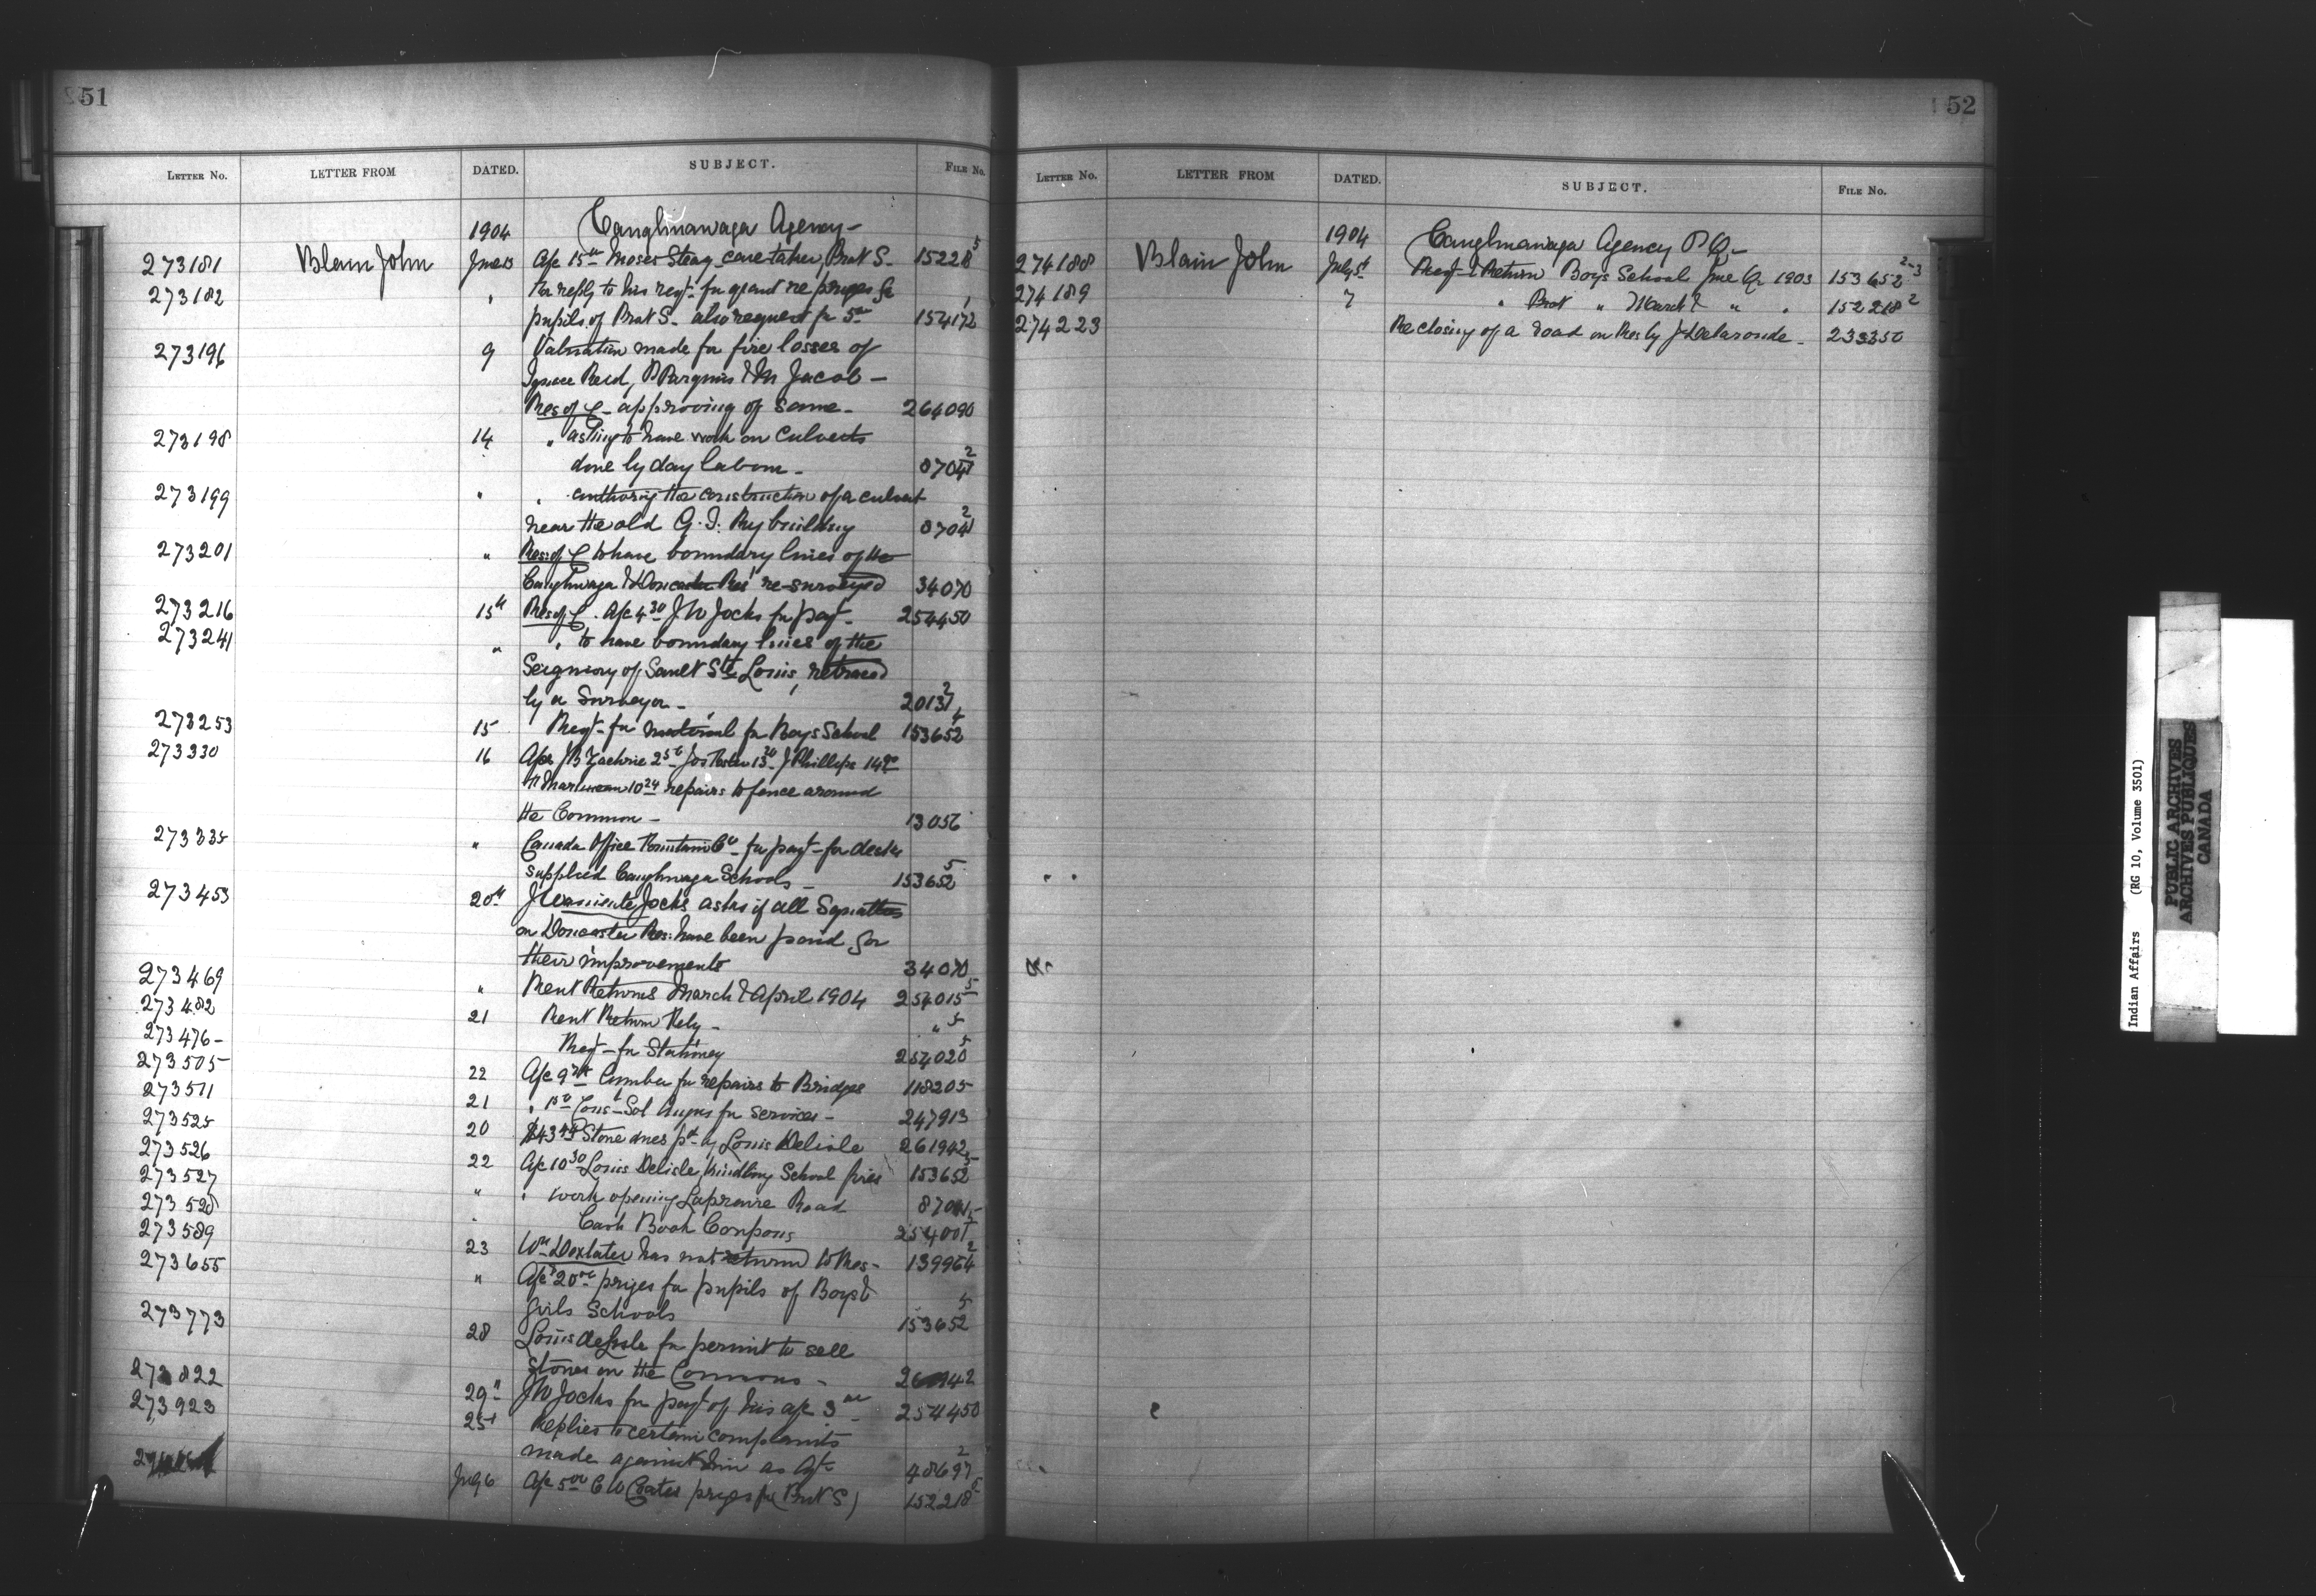 51
LETTER No. LETTER FROM DATED. SUBJECT. FILE No.
1904 Caughnawaga Agency -
273181 Blain John June 13 A/c 15 00 Moses Stacy caretaker, Prot S. - 15228 5
273182 " For reply to his reqt. for grant re prizes for
pupils of Prot S. - also request for 5 00 154172
273196 9 Valuation made for fire losses of
Ignace Reid, P & M Jacob -
Res of C - approving of same - 264090
273198 14 " asking to have work on culverts
done by day labour - 8704 2
273199 " " authorizg the construction of a culvert
near the old G.T. Ry building 8704 2
273201 " Res: of C to have boundary lines of the
Caughnwaga & Doncaster Res' re-surveyed 34070
273216 15th Res of C. A/c 4 30 J.W Jocks for payt - 254450
273241 " " to have boundary lines of the
Seigniory of Sault St Louis, retraced
by a Surveyor - 20137 2
273253 15 Reqt - for material for Boys School 153652 4
273330 16 A/cs J B Jos 13 J Phillips
10 24 repairs to fence around
the Common - 13056
273335 " Canada Office Furniture Co - for payt - for desks
supplied Caughnwaga Schools - 153652 5
273453 20th J Jocks asks if all Squatters
on Doncaster Res: have been paid for
their improvements 34070
273469 " Rent Returns March & April 1904 254015 5
273482 21 Rent Return - " 5
273476 - Reqt - for Stationery 254020 5
273505 22 A/c Lumber for repairs to Bridges 118205
273511 21 " Cons - Sol for services - 247913
273525 20 Stone dues pd by Louis Delisle 261942
273526 22 A/c 10 30 Louis Delisle, kindling School fires 153652 5
273527 " " work opening Laprairie Road 8704
273528 " Cash Book Coupons 254001 5
273589 23 Wm Doxtater has not returned to Res - 139964 2
273655 " A/c 20 00 prizes for pupils of Boys &
Girls Schools 153652 5
273773 28 Louis deLisle for permit to sell
Stones on the Commons - 261942
273822 29" JW Jocks for payt of his a/c 3 00 - 254450
273923 25t Replies to certain complaints
made against him as Agt 48697 2
July 6 A/c 5 00 C W Coates prizes for (Prot S) 152218 5
52
LETTER No. LETTER FROM DATED. SUBJECT. FILE No.
1904 Caughnawaga Agency P Q -
274188 Blain John July 5t Reqt & Return Boys School June Qr 1903 153652 2-3
274189 7 " Prot " March & " " 152218 2
274223 Re closing of a road on Res by J Delaronde - 233250
Indian Affairs (RG 10, Volume 3501)
PUBLIC ARCHIVES
ARCHIVES PUBLIQUES
CANADA